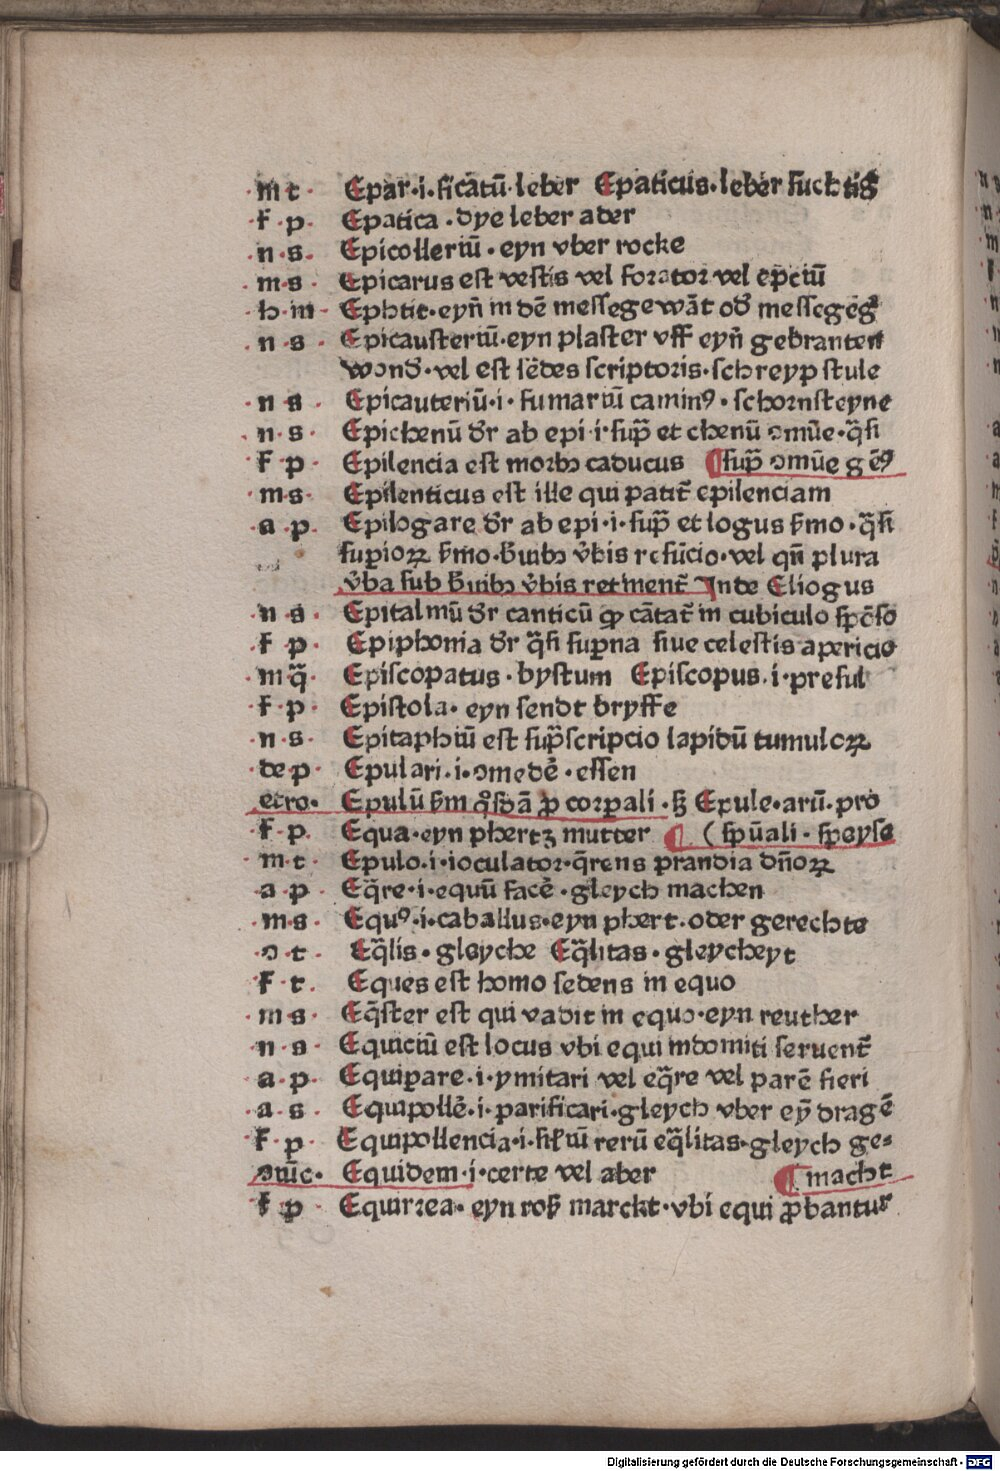 ·m t· Epar·i·ficatū·leber Epaticus·leber suchtig̃
·f p· Epatica·dye leber ader
·n s· Epicolleriū·eyn vber rocke
·m s· Epicarus est vestis vel forator vel ep̄ciū
·h·m· Ephtit·eyn̄ in dē messegewāt od̕ messegēg̕
·n s· Epicausteriū·eyn plaster vff eyn̄ gebranten
wond̕·vel est sēdes scriptoris·schreyp stule
·n s· Epicauteriū·i·fumariū caminꝰ·schornsteyne
·n·s· Epichenū dr̄ ab epi·i·sup̄ et chenū ↄmūe·q̄si
·f p· Epilencia est morbꝫ caducus ¶ sup̄ ↄmūe gēꝰ
·m s· Epilenticus est ille qui patit̄ epilenciam
·a p· Epilogare dr̄ ab epi·i·sup̄ et logus s̄mo·q̄si
suꝑioꝝ s̄mo·b̄uibꝫ v̄bis resūcio·vel qn̄ plura
v̄ba sub b̄uibꝫ v̄bis retinent̄ Inde Eliogus
·n s· Epitalmū dr̄ canticū ꝙ cātat̄ in cubiculo spōso
·f p· Epiphonia dr̄ q̄si suꝑna siue celestis apericio
·m q̄· Episcopatus·bystum Episcopus·i·presul
·f p· Epistola·eyn sendt bryffe
·n·s· Epitaphiū est sup̄scripcio lapidū tumuloꝝ
·de p· Epulari·i·ↄmedē·essen
etro· Epulū s̄m q̄sdā ꝓ corꝑali·sꝫ Epule·arū·pro
·f p· Equa·eyn phertz mutter ¶ (sp̄uali·speyse
·m t· Epulo·i·ioculator·q̄rens prandia dn̄oꝝ
·a p· Eq̄re·i·equū facē·gleych machen
·m s· Equꝰ·i·caballus·eyn phert·oder gerechte
·ↄ·t· Eq̄lis·gleyche Eq̄litas·gleycheyt
·f t· Eques est homo sedens in equo
·m s· Eq̄ster est qui vadit in equo·eyn reuther
·n s· Equiciū est locus vbi equi indomiti seruent̄
·a·p· Equiꝑare·i·ymitari vel eq̄re vel parē fieri
·a·s· Equipollē·i·parificari·gleych vber eȳ dragē
·f p· Equipollencia·i·sil̄iū rerū eq̄litas·gleych ge⸗
ↄiūc· Equidem·i·certe vel aber ¶ macht
·f p· Equirrea·eyn roß marckt·vbi equi ꝓbantur
Digitalisierung gefördert durch die Deutsche Forschungsgemeinschaft - DFG